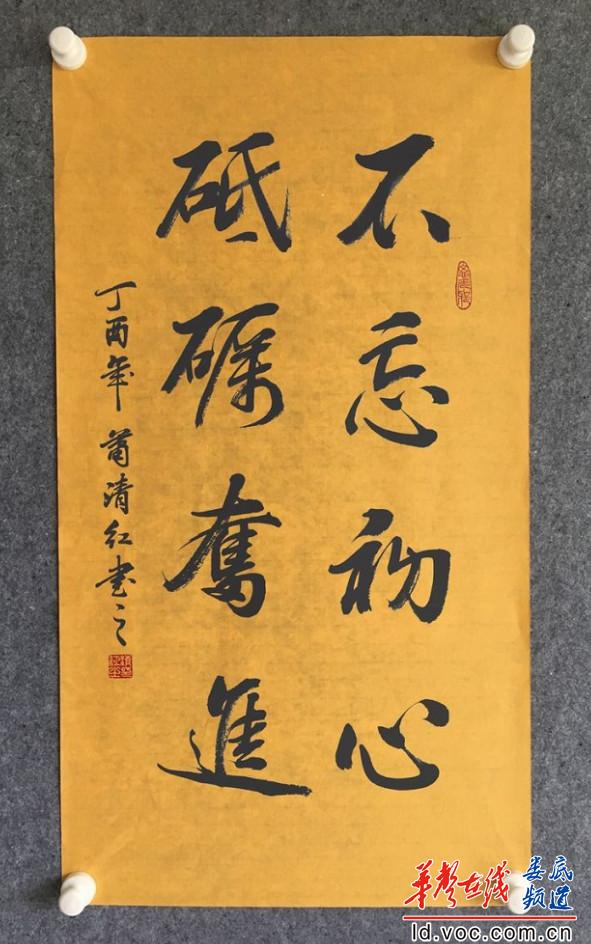 不忘初心
砥礪奮進
丁酉年 清红書之
华声在线
娄底
频道
ld.voc.com.cn